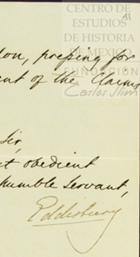 CENTRO DE
ESTUDIOS
DE HISTORIA
DE MEXICO
FUNDACION
Carlos Slim
don, pressing for
ent of the Claims
Sir,
t obedient
humble Servant,
Eddisbury